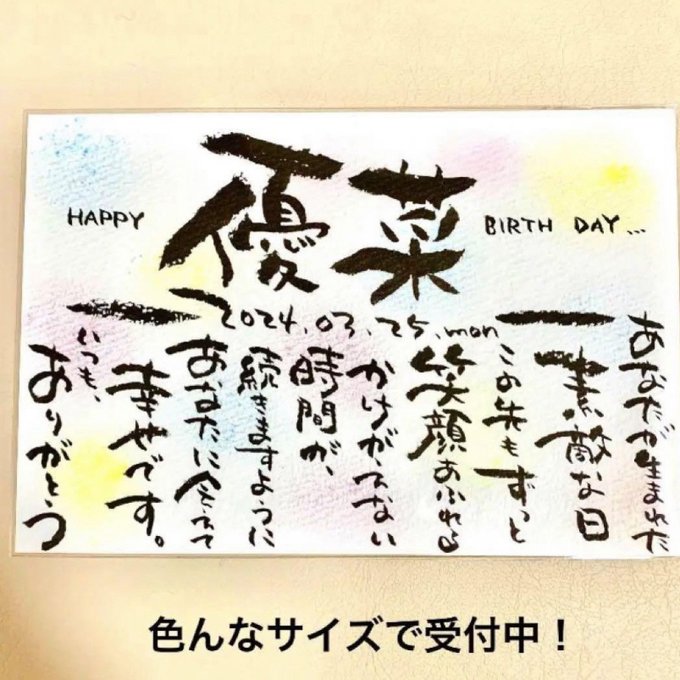 優菜
HAPPY
BIRTH DAY...
2024.03.25.mon
あなたが生まれた
素敵な日
この先もずっと
笑顔あふれる
かけがえない
時間が、
続きますように
あなたに会えて
幸せです。
いつも、
ありがとう
色んなサイズで受付中！